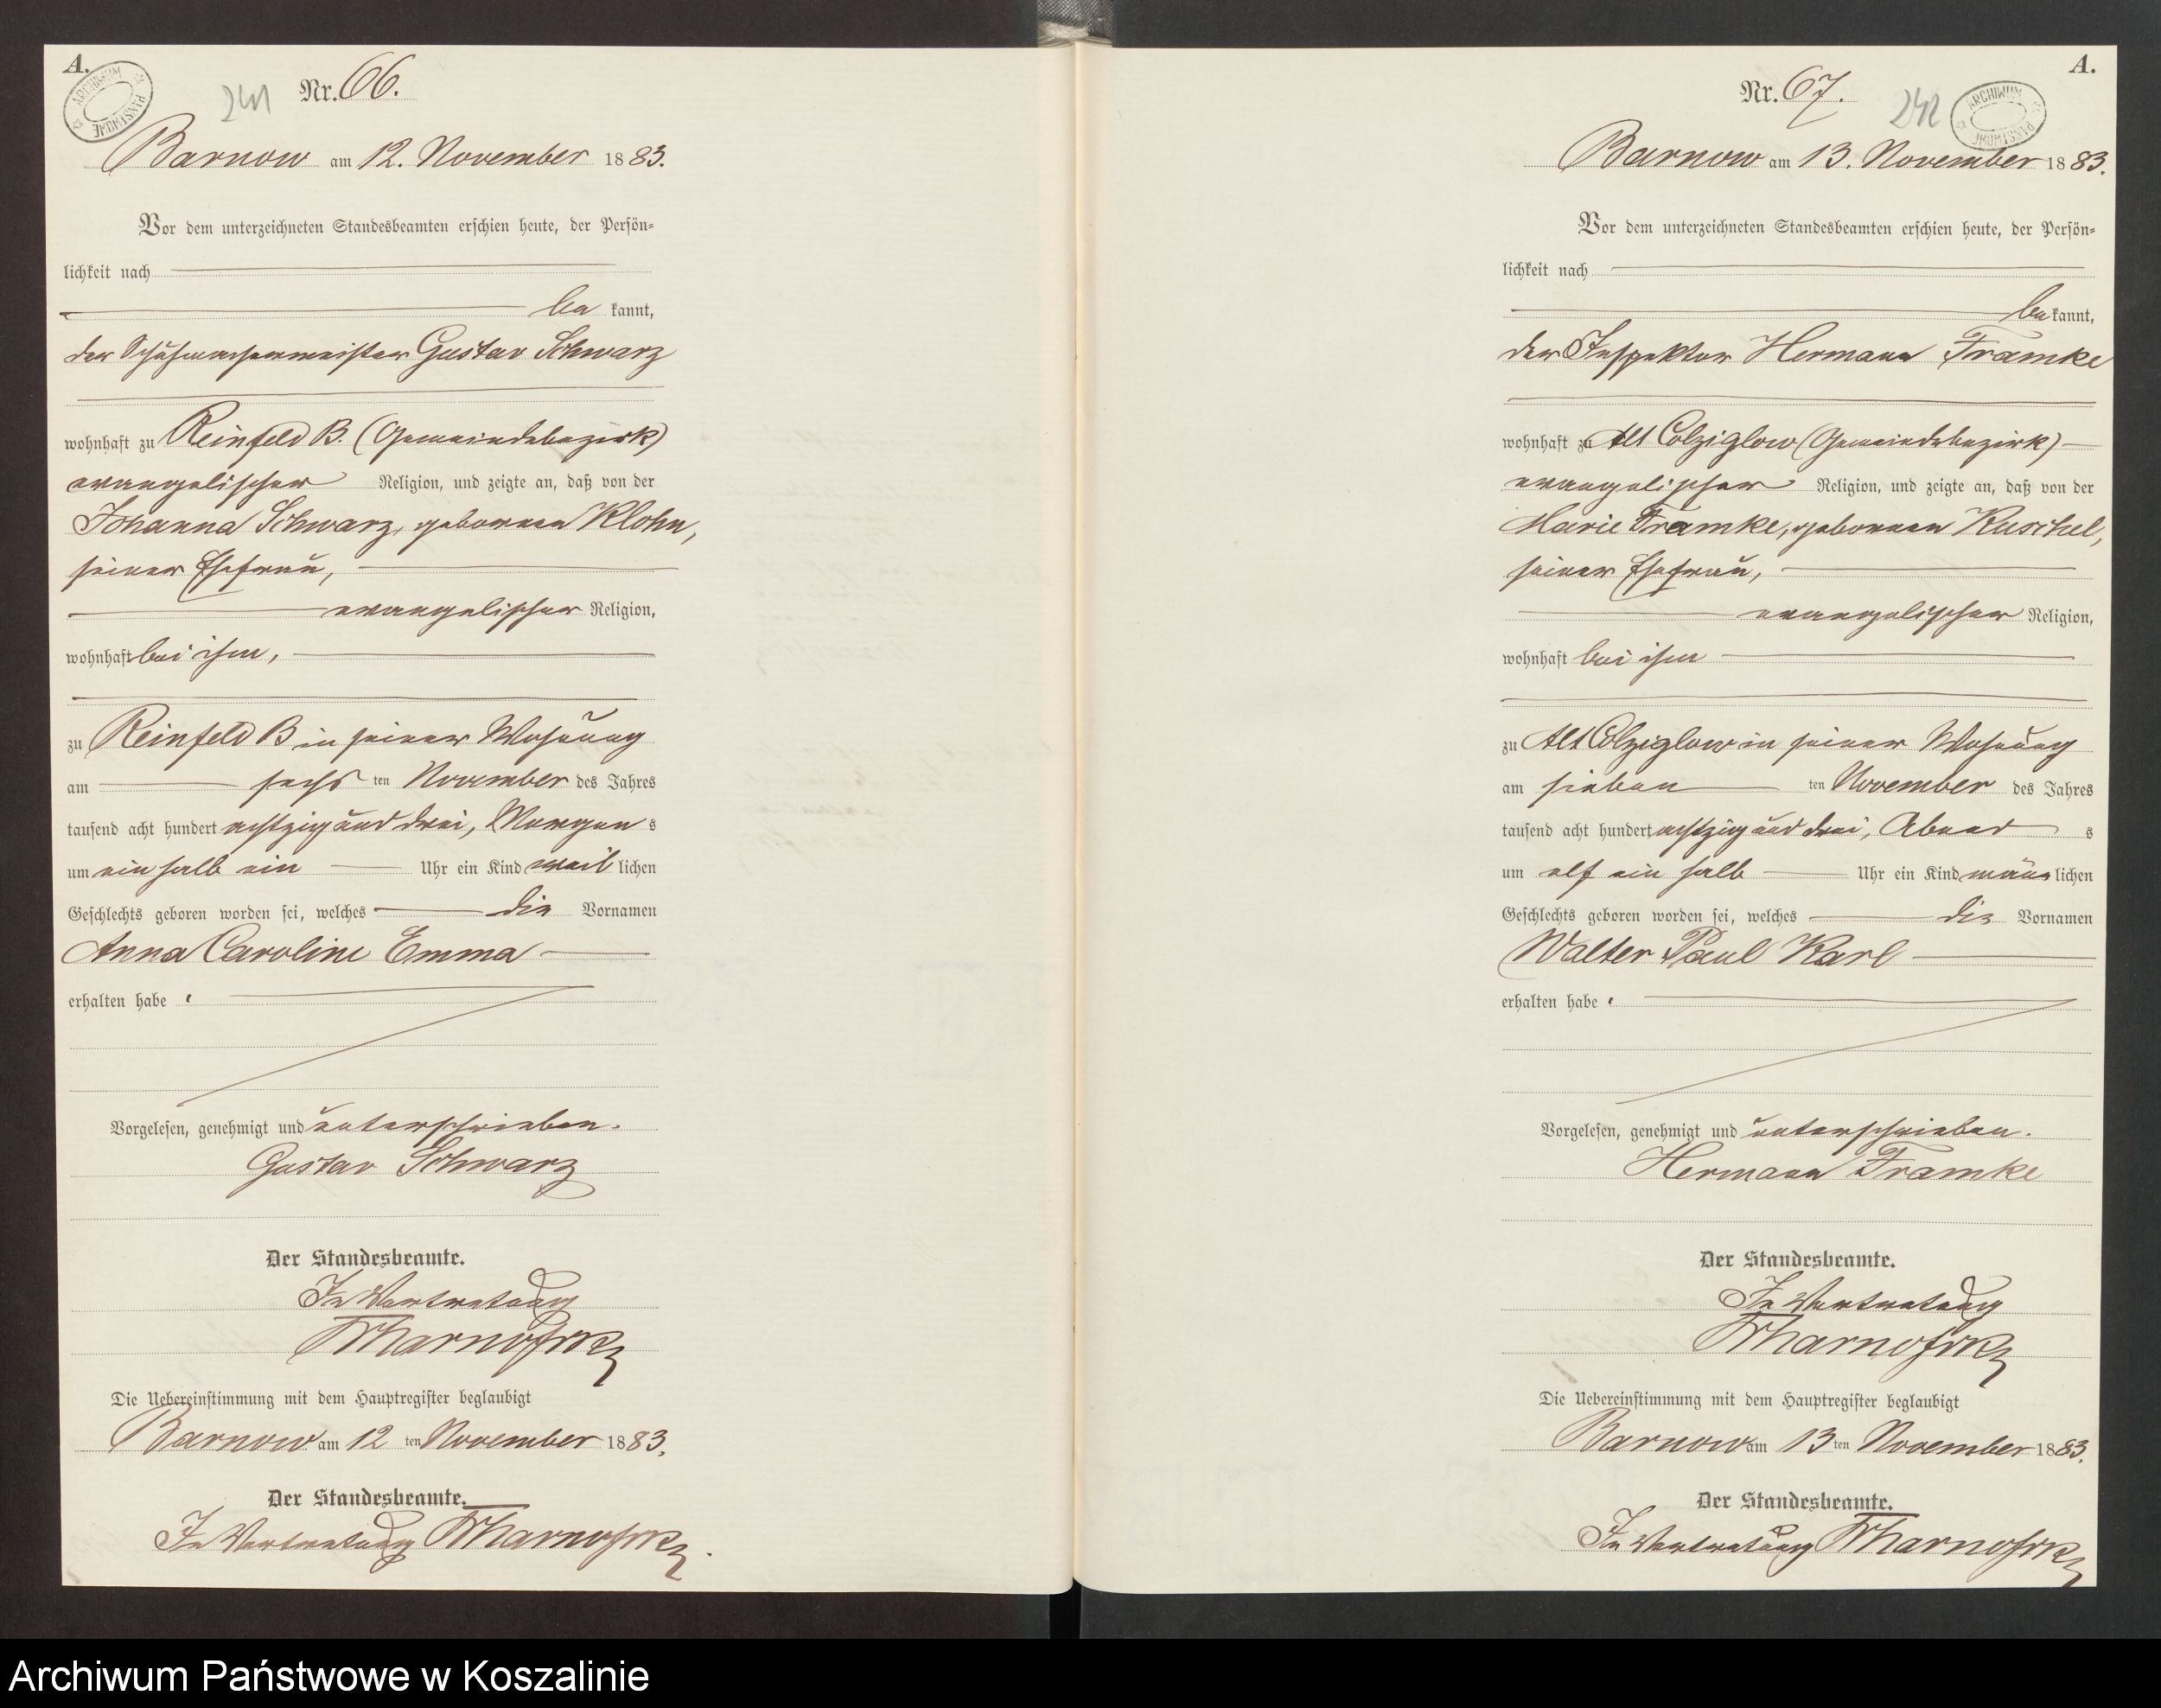 A.
ARCHIWUM PAŃSTWOWE
241
Nr. 66.
Barnow am 12. November 1883.
Vor dem unterzeichneten Standesbeamten erschien heute, der Persön=
lichkeit nach
be kannt,
der Schuhmachermeister Gustav Schwarz
wohnhaft zu Reinfeld B. (Gemeindebezirk)
evangelischer Religion, und zeigte an, daß von der
Johanna Schwarz, geborenen Klohn,
seiner Ehefrau,
evangelischer Religion,
wohnhaft bei ihm,
zu Reinfeld B in seiner Wohnung
am sechs ten November des Jahres
tausend acht hundert achtzig und drei, Morgen s
um ein halb ein Uhr ein Kind weib lichen
Geschlechts geboren worden sei, welches die Vornamen
Anna Caroline Emma
erhalten habe.
Vorgelesen, genehmigt und unterschrieben.
Gustav Schwarz
Der Standesbeamte.
In Vertretung
Die Uebereinstimmung mit dem Hauptregister beglaubigt
Barnow am 12 ten November 1883.
Der Standesbeamte.
In Vertretung
A.
Nr. 67.
242
ARCHIWUM PAŃSTWOWE
Barnow am 13. November 1883.
Vor dem unterzeichneten Standesbeamten erschien heute, der Persön=
lichkeit nach
be kannt,
der Inspektor Hermann Framke
wohnhaft zu Alt Colziglow (Gemeindebezirk)
evangelischer Religion, und zeigte an, daß von der
Marie Framke, geborenen Kuschel,
seiner Ehefrau,
evangelischer Religion,
wohnhaft bei ihm
zu Alt Colziglow in seiner Wohnung
am sieben ten November des Jahres
tausend acht hundert achtzig und drei, Abend s
um elf ein halb Uhr ein Kind männ lichen
Geschlechts geboren worden sei, welches die Vornamen
Walter Paul Karl
erhalten habe.
Vorgelesen, genehmigt und unterschrieben.
Hermann Framke
Der Standesbeamte.
In Vertretung
Die Uebereinstimmung mit dem Hauptregister beglaubigt
Barnow am 13 ten November 1883.
Der Standesbeamte.
In Vertretung
Archiwum Państwowe w Koszalinie